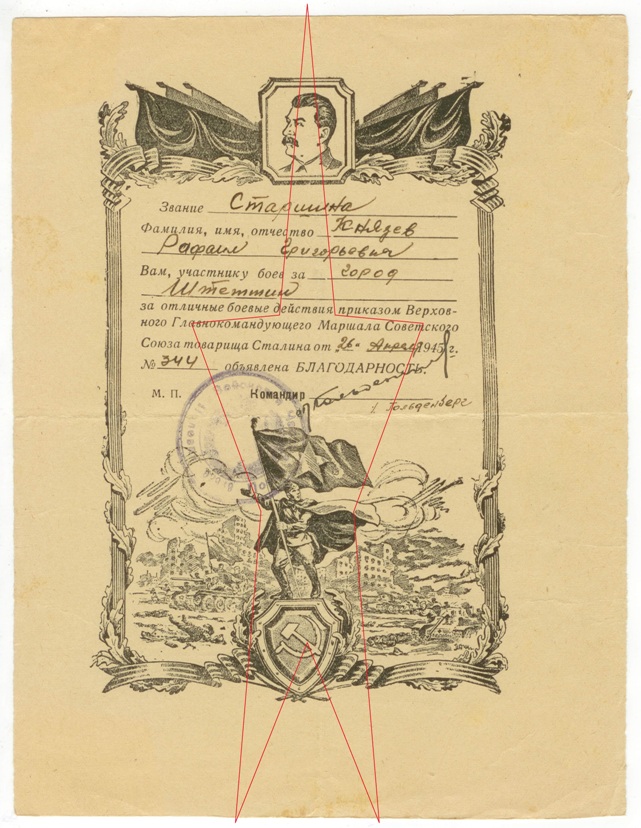 Звание Старшина
Фамилия, имя, отчество Князев
Рафаил Григорьевич
Вам, участнику боев за город
Штеттин
за отличные боевые действия приказом Верхов-
ного Главнокомандующего Маршала Советского
Союза товарища Сталина от 26 Апреля 1945 г.
№ 344 объявлена БЛАГОДАРНОСТЬ.
М. П. Командир
Гольденберг